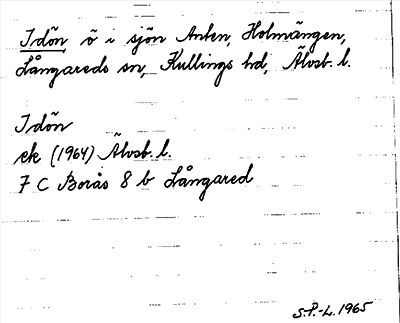 Idön, ö i sjön Anten, Holmängen,
Långareds sn, Kullings hd, Älvsb. l.
Idön
ek (1964) Älvsb. l.
7 C Borås 8 b Långared
S.P.-L. 1965